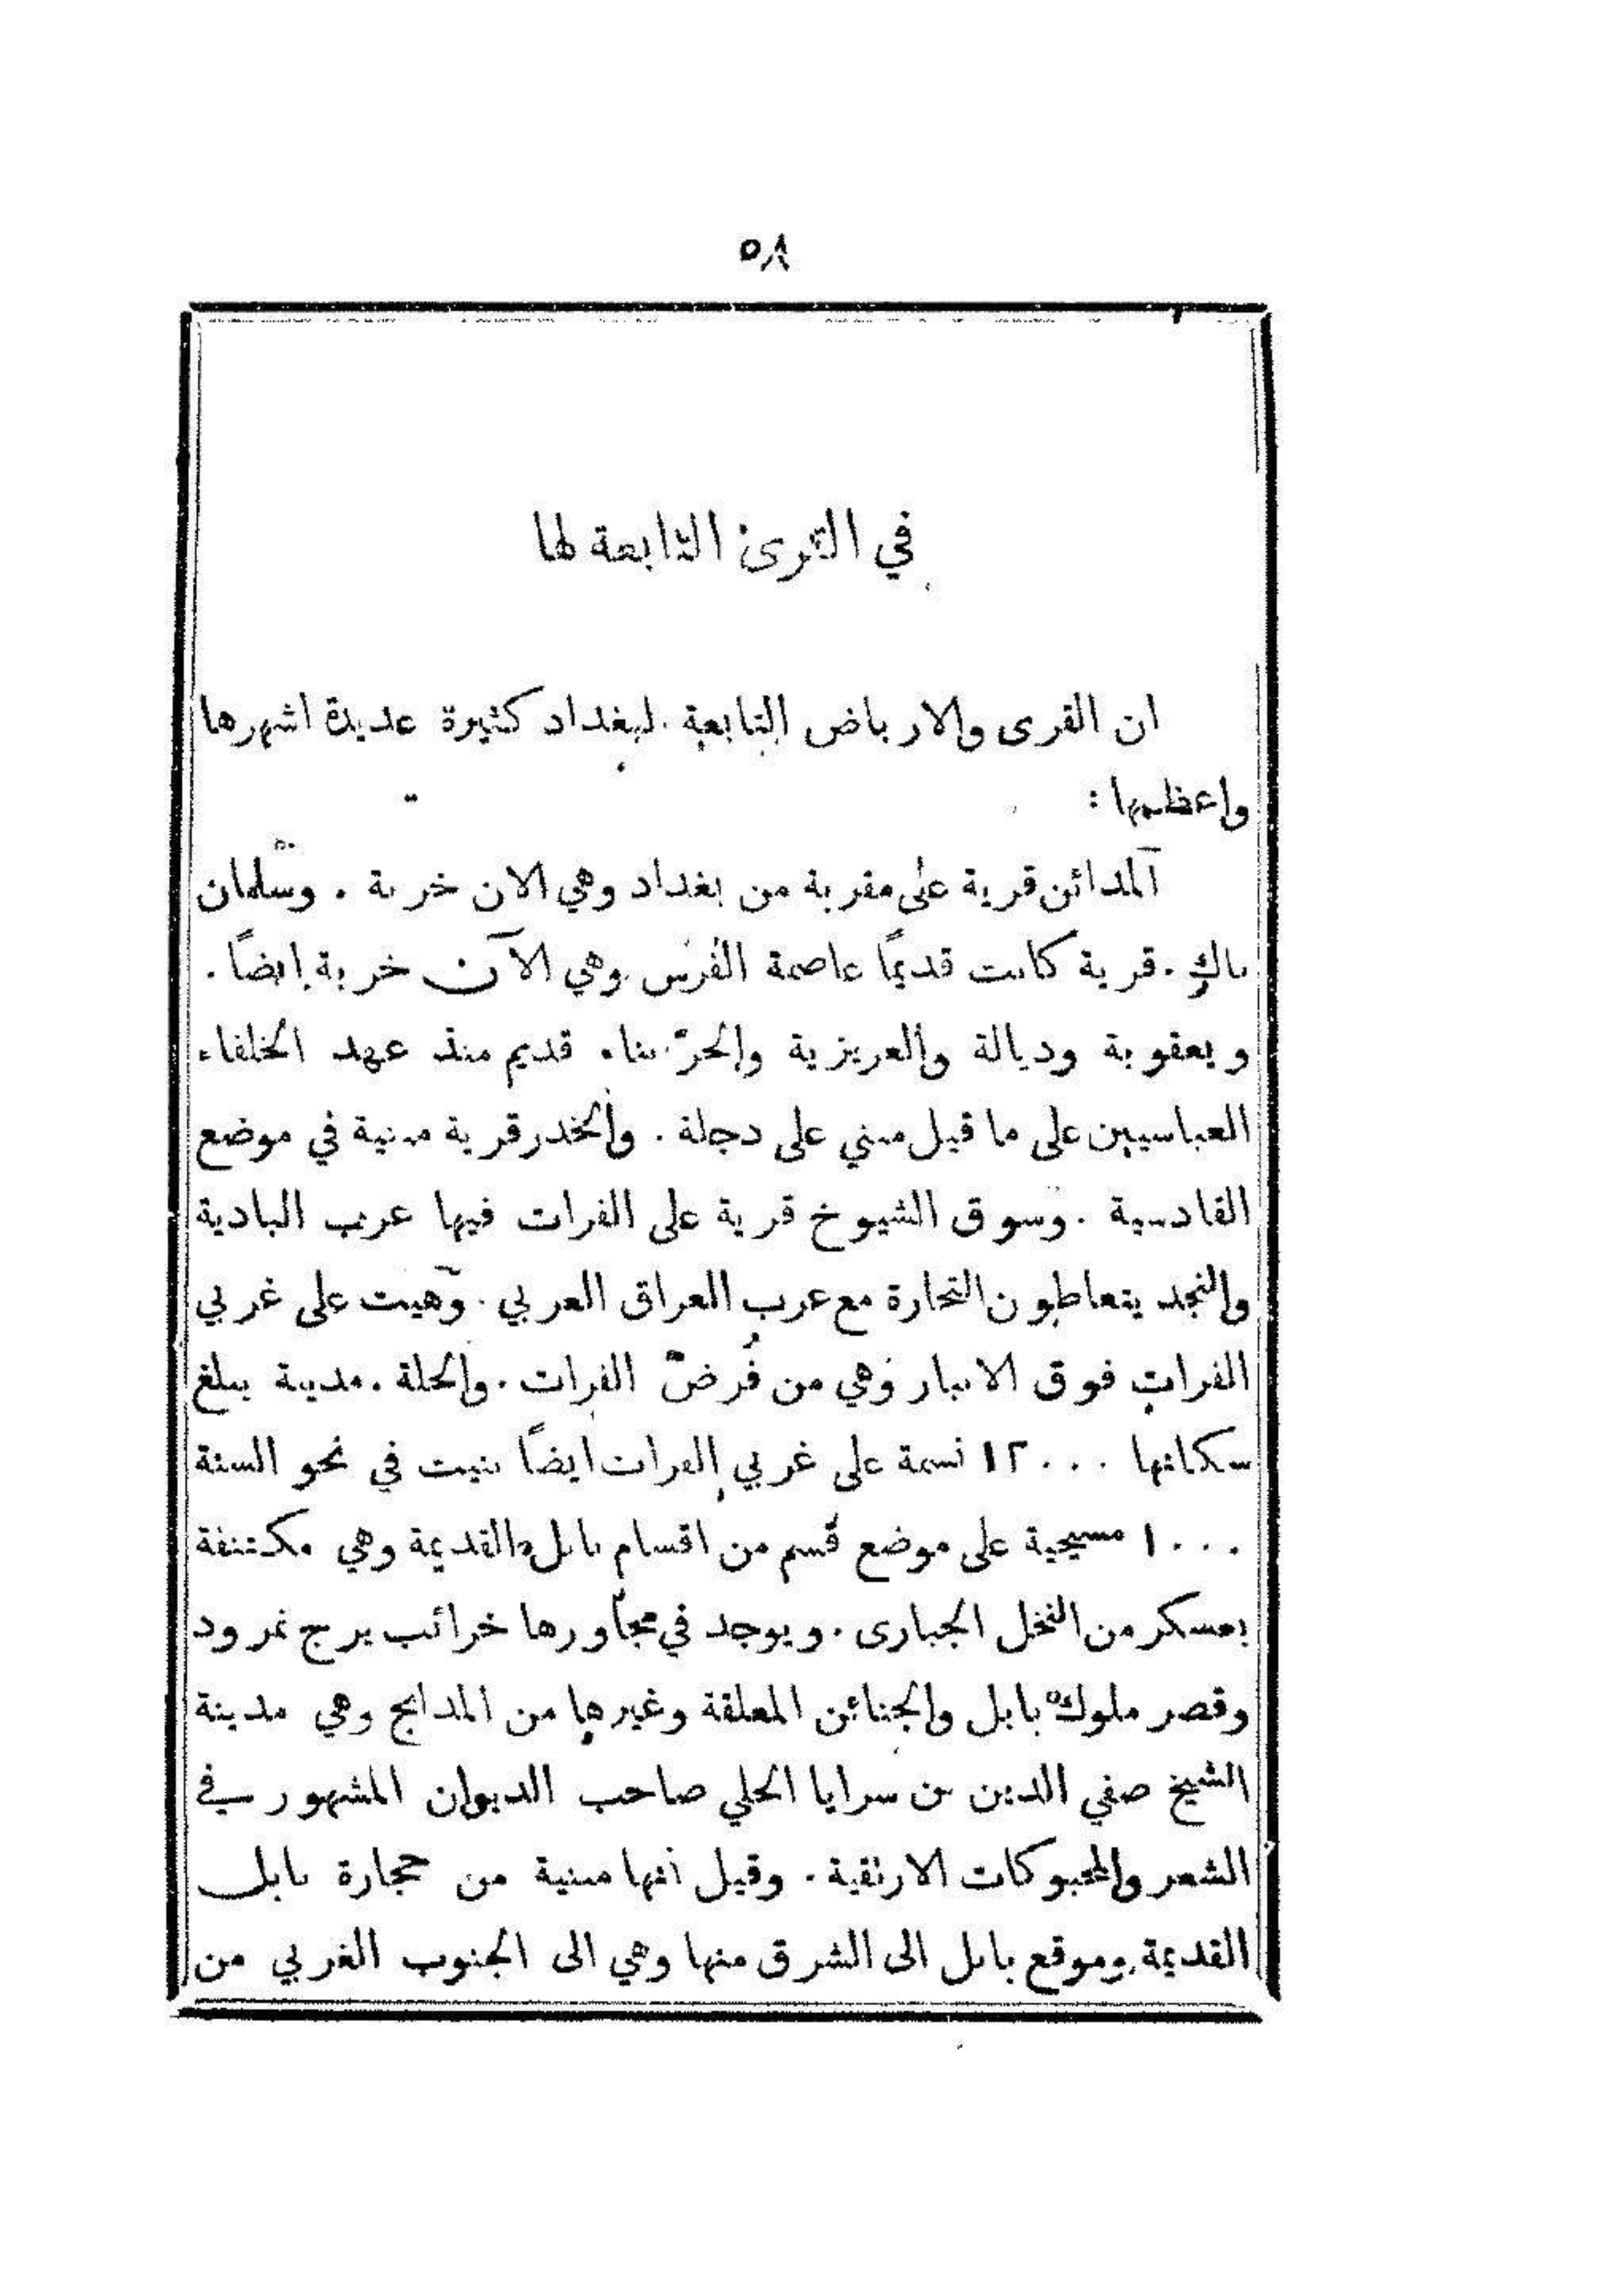 ٥٨
في القرى التابعة لها
ان القرى والارباض التابعة لبغداد كثيرة عديدة اشهرها
واعظمها :
المدائن قرية على مقربة من بغداد وهي الان خربة . وسلمان
باك . قرية كانت قديمًا عاصمة الفرس وهي الآن خربة ايضًا .
وبعقوبة وديالة والعزيزية والحرّ بناء قديم منذ عهد الخلفاء
العباسيين على ما قيل مبني على دجلة . والخدر قرية مبنية في موضع
القادسية . وسوق الشيوخ قرية على الفرات فيها عرب البادية
والنجد يتعاطون التجارة مع عرب العراق العربي . وهيت على غربي
الفرات فوق الانبار وهي من فُرض الفرات . والحلة . مدينة يبلغ
سكانها ١٢٠٠٠ نسمة على غربي الفرات ايضًا بنيت في نحو السنة
١٠٠٠ مسيحية على موضع قسم من اقسام بابل القديمة وهي مكتنفة
بعسكر من النخل الجبارى . ويوجد في مجاورها خرائب برج نمرود
وقصر ملوك بابل والجنائن المعلقة وغيرها من المدابح وهي مدينة
الشيخ صفي الدين بن سرايا الحلي صاحب الديوان المشهور في
الشعر والمحبوكات الارتقية . وقيل انها مبنية من حجارة بابل
القديمة وموقع بابل الى الشرق منها وهي الى الجنوب الغربي من